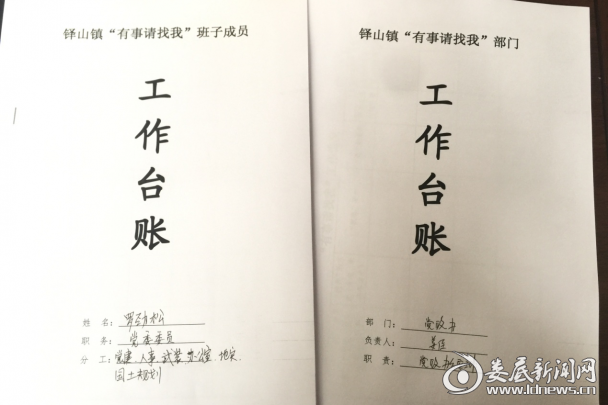 铎山镇“有事请找我”班子成员
工作台账
姓 名：罗劲松
职 务：党委委员
分 工：党建、人事、武装、办公室、
国土规划
铎山镇“有事请找我”部门
工作台账
部 门：党政办
负责人：
职 责：党政
娄底新闻网
www.ldnews.cn